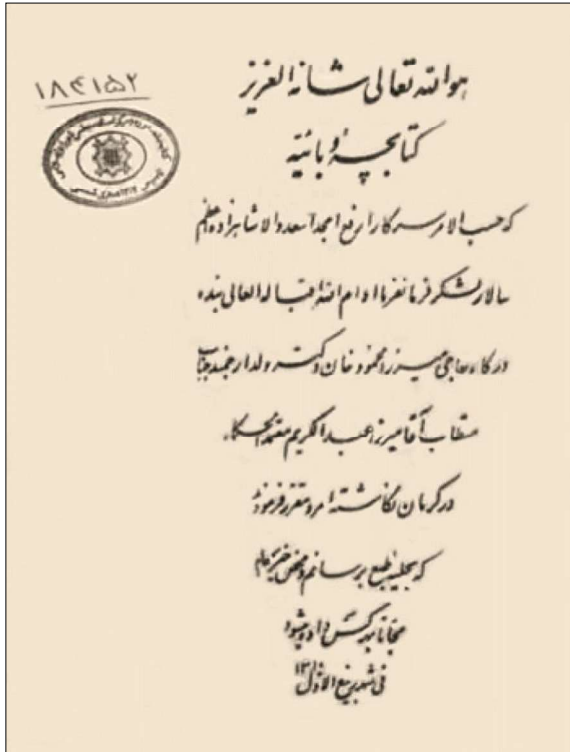 هوالله تعالی شانه العزیز
۱۸۴۱۵۲
کتابچهٔ وبائیه
که حسب الامر سرکار ارفع امجد اسعد والا شاهزاده اعظم
سالار لشکر فرمانفرما ادام الله اقباله العالی بنده
درگاه حاجی میرزا محمود خان دکتر ولد ارجمند جناب
مستطاب آقا میرزا عبدالکریم معتمد الحکماء
در کرمان نگاشته امر و مقرر فرمودند
که بحلیه طبع برسانم و محض خیریه عام
مجانا بهر کس داده میشود
فی شهر ربیع الاول